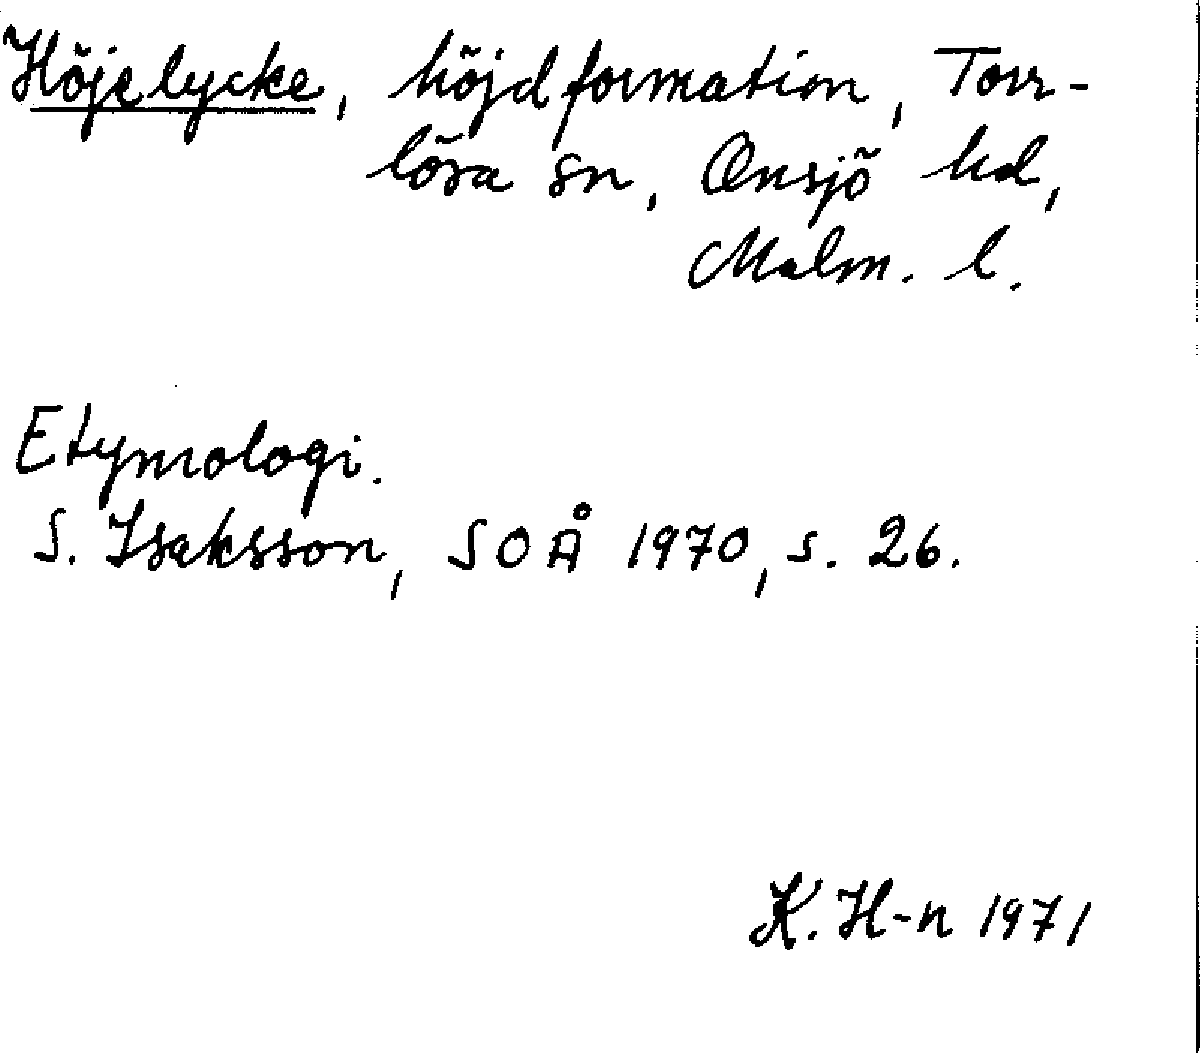 Höjelycke, höjdformation, Torr-
lösa sn, Onsjö hd,
Malm. l.
Etymologi.
S. Isaksson, SOÅ 1970, s. 26.
K. H-n 1971